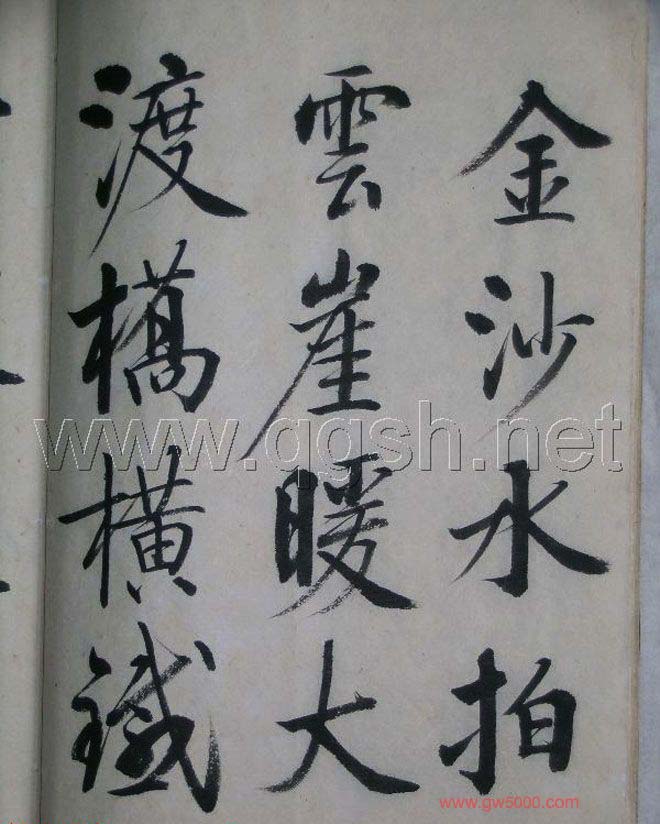 金沙水拍
雲崖暖大
渡橋橫鐵
www.qgsh.net
www.gw5000.com